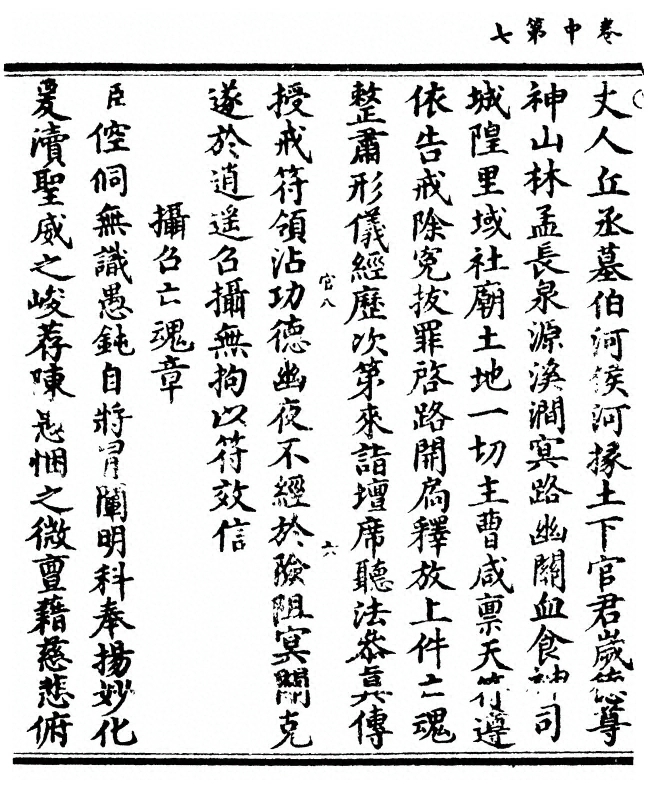 卷中第七
丈人丘丞墓伯河侯河掾土下官君歲德尊
神山林孟長泉源溪澗冥路幽關血食神司
城隍里域社廟土地一切主曹咸稟天符遵
依告戒除冤拔罪啓路開扃釋放上件亡魂
整肅形儀經歷次第來詣壇席聽法參真傳
官八
六
授戒符領沾功德幽夜不經於險阻冥關克
遂於逍遥召攝無拘以符效信
攝召亡魂章
臣倥侗無識愚鈍自將冒闡明科奉揚妙化
爰瀆聖威之峻荐陳悃之微亶藉慈悲俯